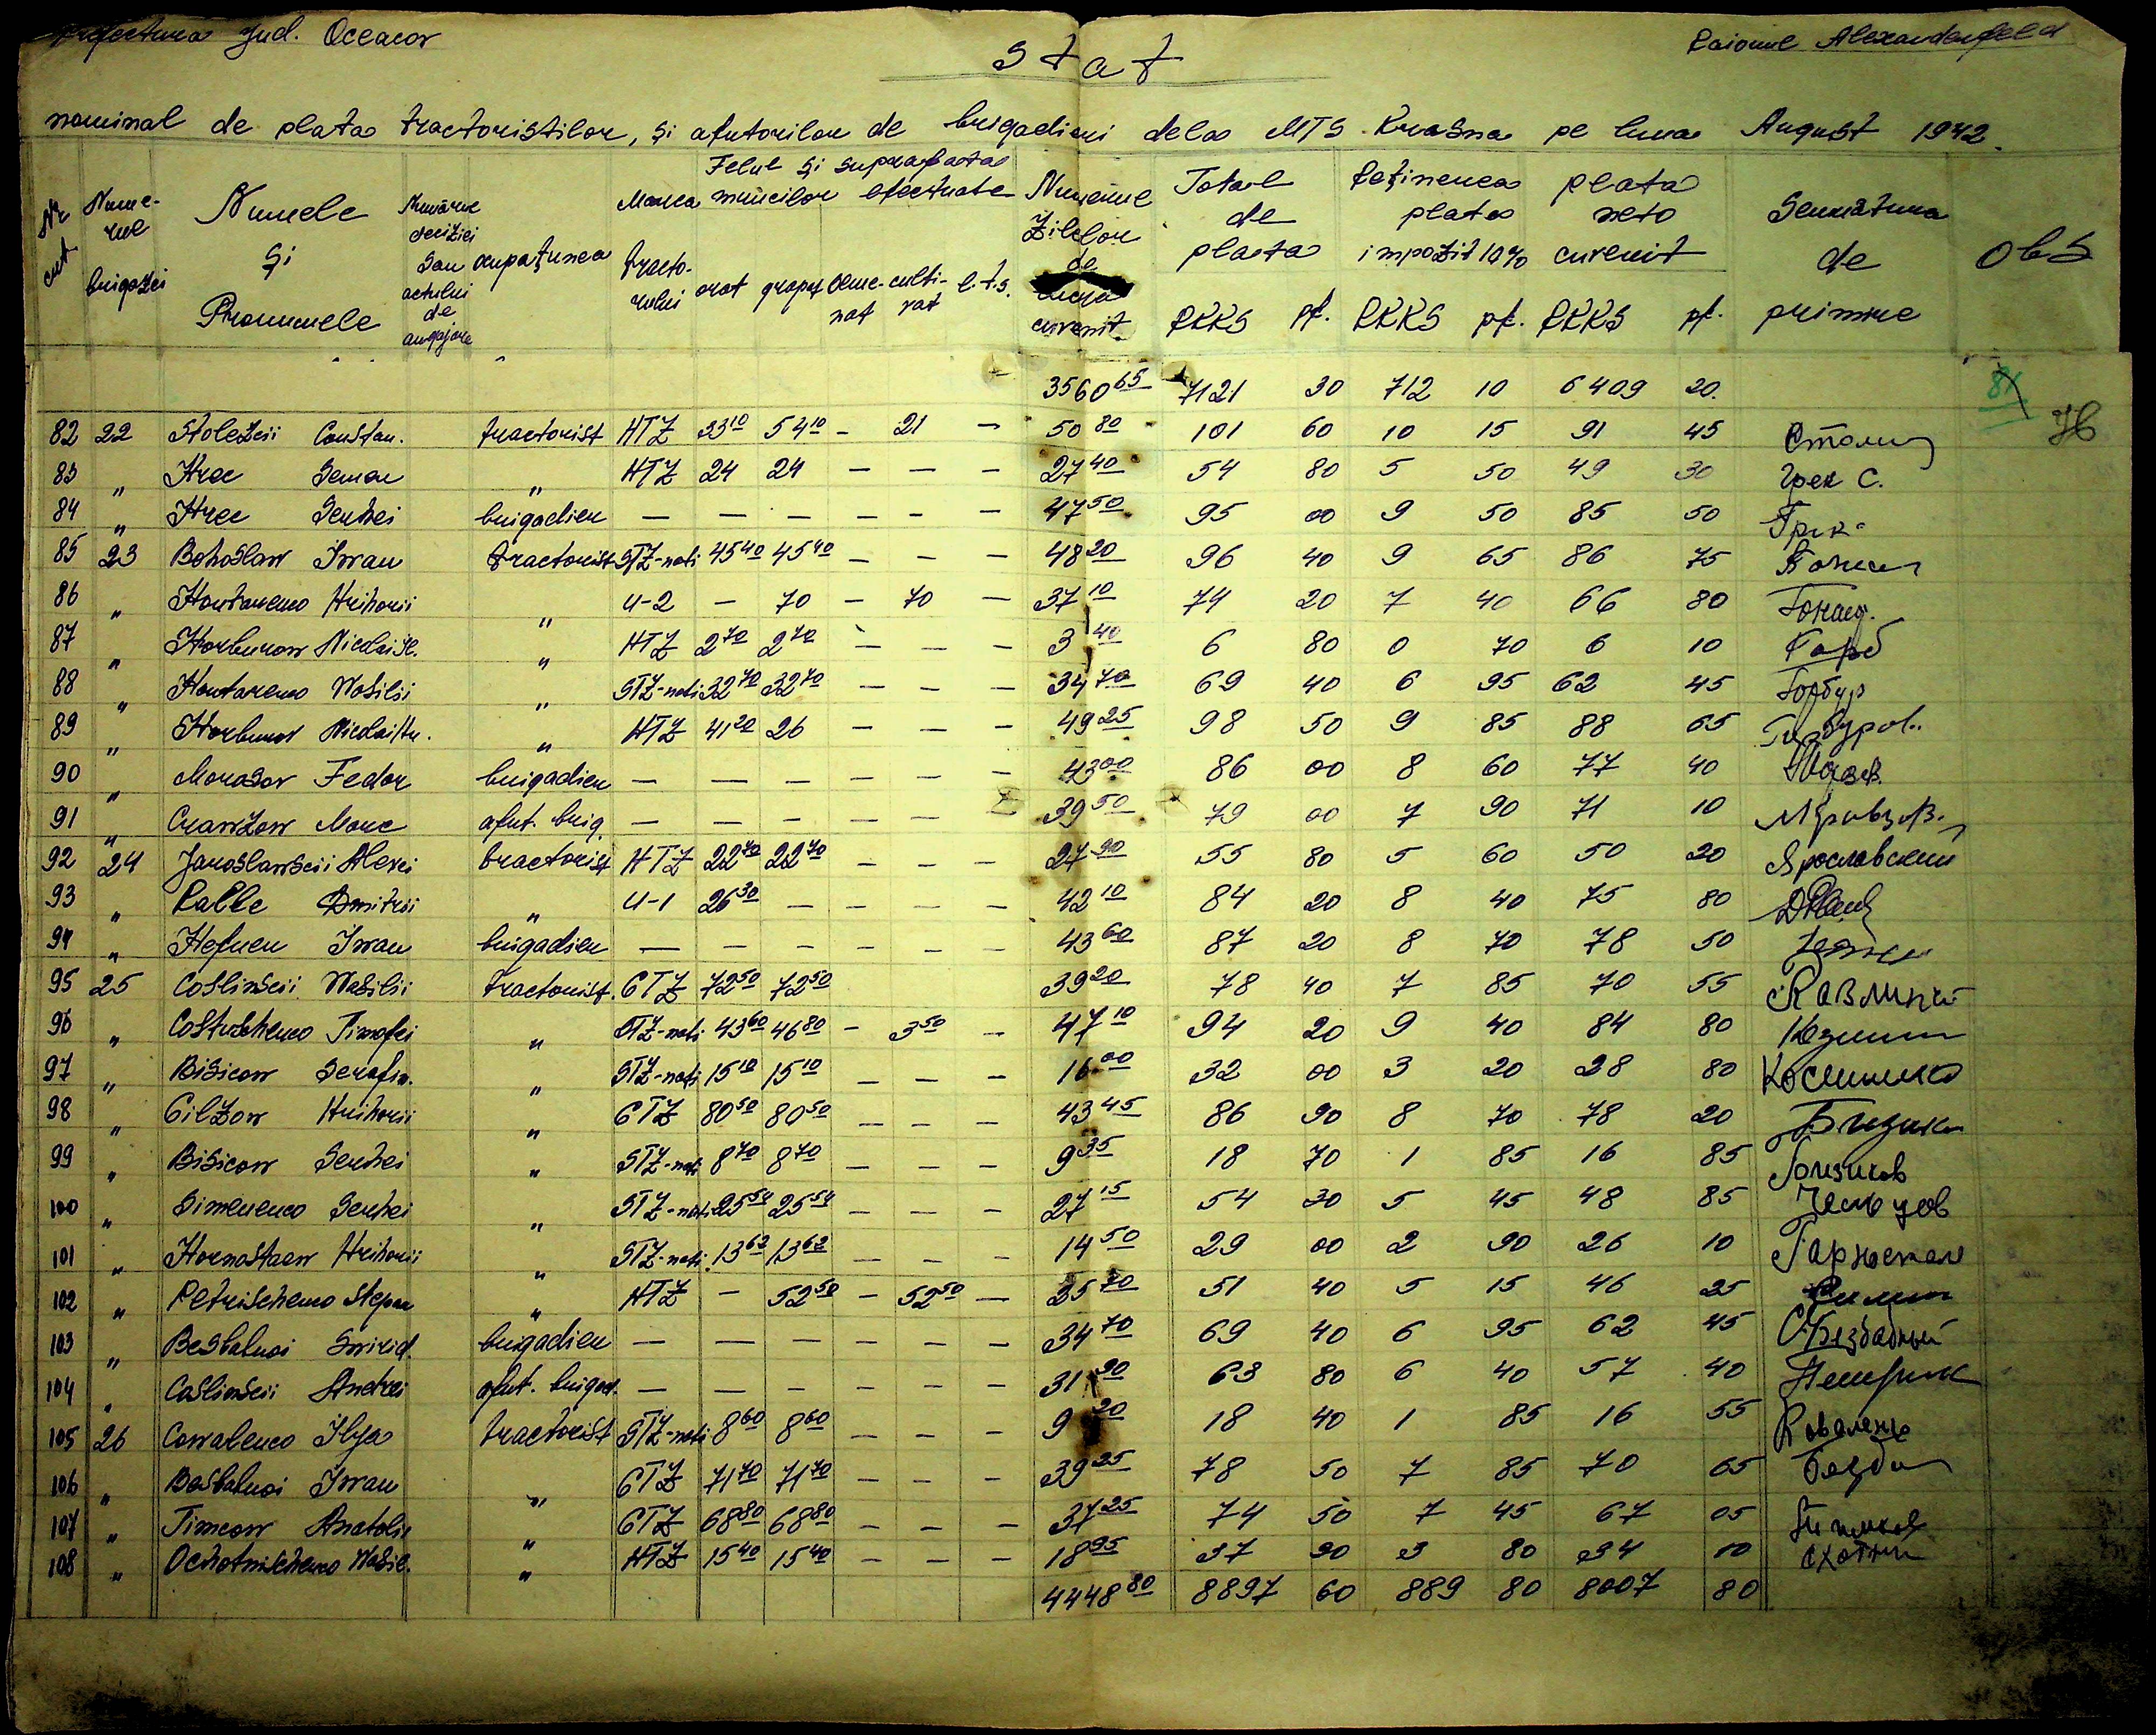 Prefectura Jud. Oceacov
Raionul Alexanderfeld
Stat
nominal de plata tractoristilor, și ajutorilor de brigadieri dela MTS Krasna pe luna August 1942.
Nr crt Nume-rul brigăzei Numele și Pronumele Numărul deciziei sau actului de angajare ocupațiunea Marca tracto-rului Felul și suprafața muncilor efectuate arat grapat seme-nat culti-vat l.t.s. Numărul zilelor de lucru cuvenit. Total de plata RKKS pf. Reținerea plata impozit 10% RKKS pf. plata neto cuvenit RKKS pf. Semnătura de primire Obs
3560 65 7121 30 712 10 6409 20.
82 22 Stolezcii Constan. tractorist HTZ 23 10 54 10 – 21 – 50 80 101 60 10 15 91 45
83 " Hrec Seman " HTZ 24 24 – – – 27 40 54 80 5 50 49 30 Грек С.
84 " Hrec Serhei brigadier – – – – – – 47 50 95 00 9 50 85 50
85 23 Bohoslaw Iwan tractorist STZ-nati 45 40 45 40 – – – 48 20 96 40 9 65 86 75
86 " Hontarenco Hrihorii " U-2 – 70 – 70 – 37 10 74 20 7 40 66 80
87 " Horburow Nicolai " HTZ 2 70 2 70 – – – 3 40 6 80 0 70 6 10
88 " Hontarenco Wasilii " STZ-nati 32 70 32 70 – – – 34 70 69 40 6 95 62 45
89 " Horburov Nicolai " HTZ 41 20 26 – – – 49 25 98 50 9 85 88 65
90 " Morasov Fedor brigadier – – – – – – 43 00 86 00 8 60 77 40
91 " Crawzow Marc ajut. brig. – – – – – – 39 50 79 00 7 90 71 10
92 24 Jaroslawscii Alexei tractorist HTZ 22 70 22 70 – – – 27 90 55 80 5 60 50 20 Ярославский
93 " Ralle Dmitrii " U-1 26 30 – – – – 42 10 84 20 8 40 75 80
94 " Hefner Iwan brigadier – – – – – – 43 60 87 20 8 70 78 50
95 25 Coslinscii Wasilii tractorist. CTZ 72 50 72 50 39 20 78 40 7 85 70 55
96 " Costuschenco Timofei " STZ-nati 43 60 46 80 – 3 50 – 47 10 94 20 9 40 84 80
97 " Bisicow Serafim. " STZ-nati 15 10 15 10 – – – 16 00 32 00 3 20 28 80
98 " Cilzow Hrihorii " CTZ 80 50 80 50 – – – 43 45 86 90 8 70 78 20
99 " Bisicow Serhei " STZ-nati 8 70 8 70 – – – 9 35 18 70 1 85 16 85
100 " Simenenco Serhei " STZ-nati 25 54 25 54 – – – 27 15 54 30 5 45 48 85
101 " Hornostaew Hrihorii " STZ-nati 13 62 13 62 – – – 14 50 29 00 2 90 26 10
102 " Petrischenco Stepan " HTZ – 52 50 – 52 50 – 25 70 51 40 5 15 46 25
103 " Besbalnoi Swirid. brigadier – – – – – – 34 70 69 40 6 95 62 45
104 " Coslinscii Andrei ajut. brigad. – – – – – – 31 90 63 80 6 40 57 40
105 26 Cowalenco Ilya tractorist STZ-nati 8 60 8 60 – – – 9 20 18 40 1 85 16 55
106 " Besbalnoi Iwan " CTZ 71 70 71 70 – – – 39 25 78 50 7 85 70 65
107 " Timcow Anatolii " CTZ 68 80 68 80 – – – 37 25 74 50 7 45 67 05
108 " Ochotnischenco Wasil. " HTZ 15 40 15 40 – – – 18 95 37 90 3 80 34 10
4448 80 8897 60 889 80 8007 80